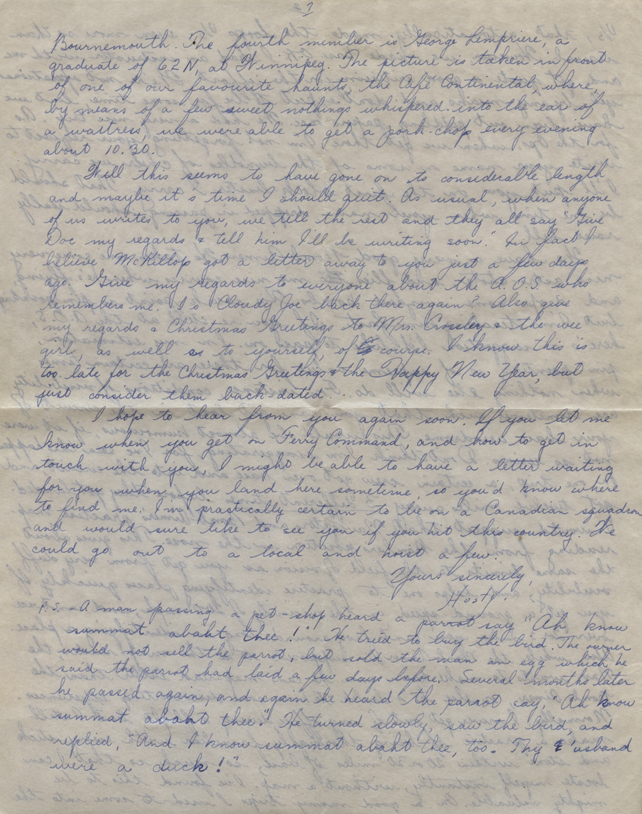 3
Bournemouth. The fourth member is George Lempriere, a
graduate of 62N, at Winnipeg. The picture is taken in front
of one of our favourite haunts, the Café Continental, where,
by means of a few sweet nothings whispered into the ear of
a waitress, we were able to get a pork-chop every evening
about 10.30.
Well this seems to have gone on to considerable length
and maybe it's time I should quit. As usual, when anyone
of us writes to you, we tell the rest and they all say "Give
Doc my regards & tell him I'll be writing soon." In fact I
believe McKillop got a letter away to you just a few days
ago. Give my regards to everyone about the A.O.S who
remembers me. Is Cloudy Joe back there again? Also give
my regards & Christmas Greetings to Mrs. Crossley & the wee
girls, as well as to yourself, of course. I know this is
too late for the Christmas Greetings & the Happy New Year, but
just consider them back dated.
I hope to hear from you again soon. If you let me
know when you get on Ferry Command, and how to get in
touch with you, I might be able to have a letter waiting
for you when you land here sometime, so you'd know where
to find me. I'm practically certain to be on a Canadian squadron
and would sure like to see you if you hit this country. We
could go out to a local and hoist a few.
Yours sincerely
P.S. - A man passing a pet-shop heard a parrot say "Ah, know
summat abaht thee!" He tried to buy the bird. The owner
would not sell the parrot, but sold the man an egg which he
said the parrot had laid a few days before. Several months later
he passed again, and again he heard the parrot say, "Ah know
summat abaht thee." He turned slowly, saw the bird, and
replied, "And I know summat abaht thee, too. Thy 'usband
were a duck!"